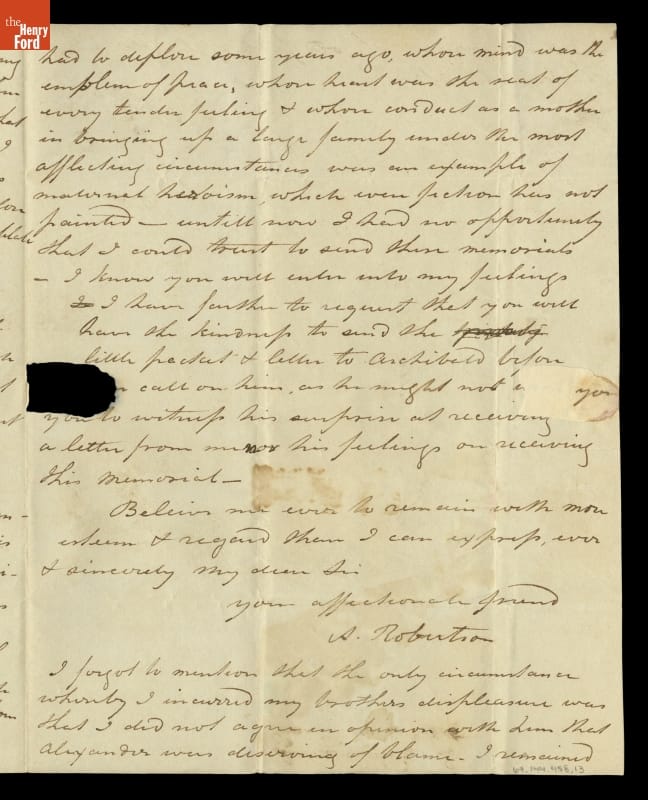 the
Henry
Ford
had to deplore some years ago, whose mind was the
emblem of peace, whose heart was the seat of
every tender feeling & whose conduct as a mother
in bringing up a large family under the most
afflicting circumstances was an example of
maternal heroism, which even fiction has not
painted — untill now I had no opportunety
that I could trust to send these memorials
— I know you will enter into my feelings
& I have farther to request that you will
have the kindness to send the
little packet & letter to Archibald before
call on him, as he might not you
you to witness his surprise at receiving
a letter from me nor his feelings on receiving
this memorial —
Believe me ever to remain with more
esteem & regard than I can express, ever
& sincerely my dear Sir
your affectionate friend
A. Robertson
I forgot to mention that the only circumstance
whereby I incurred my brothers displeasure was
that I did not agree in opinion with him that
Alexander was deserving of blame - I remained
64.144.455.13